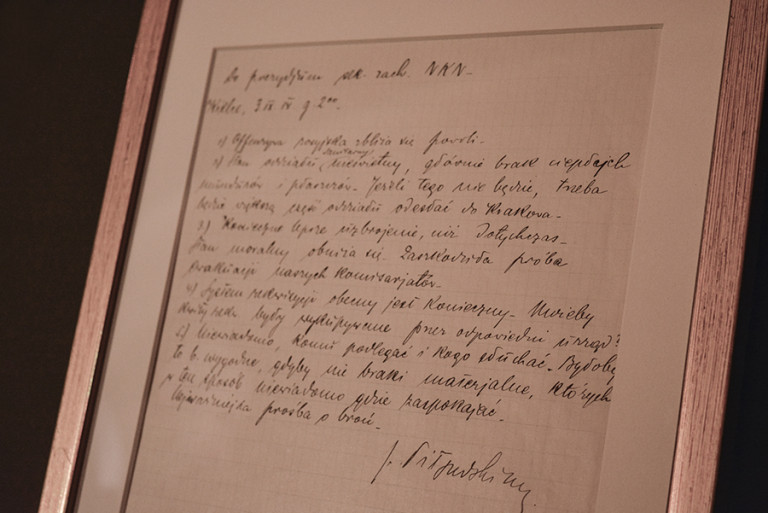 Do prezydjum sek. zach. NKN.
Kielce, 3 IX g. 2⁰⁰.
1) Offenzywa rosyjska zbliża się powoli.
2) Stan oddziału sanitarny nieświetny, głównie brak ciepłych
mundurów i płaszczów. Jeżeli tego nie będzie, trzeba
będzie większą część oddziału odesłać do Krakowa.
3) Konieczne lepsze uzbrojenie, niż dotychczas.
Stan moralny obniża się. Zaszkodziła próba
ewakuacji naszych komisarjatów.
4) System rekwizycji obecny jest konieczny. Mogłyby
kwity rekw. byłyby wykupywane przez odpowiedni urząd?
5) Niewiadomo, komu podlegać i kogo słuchać. Byłoby
to b. wygodne, gdyby nie braki materjalne, których
w ten sposób niewiadomo gdzie zaspokajać.
Najważniejsza prośba o broń.
J. Piłsudski